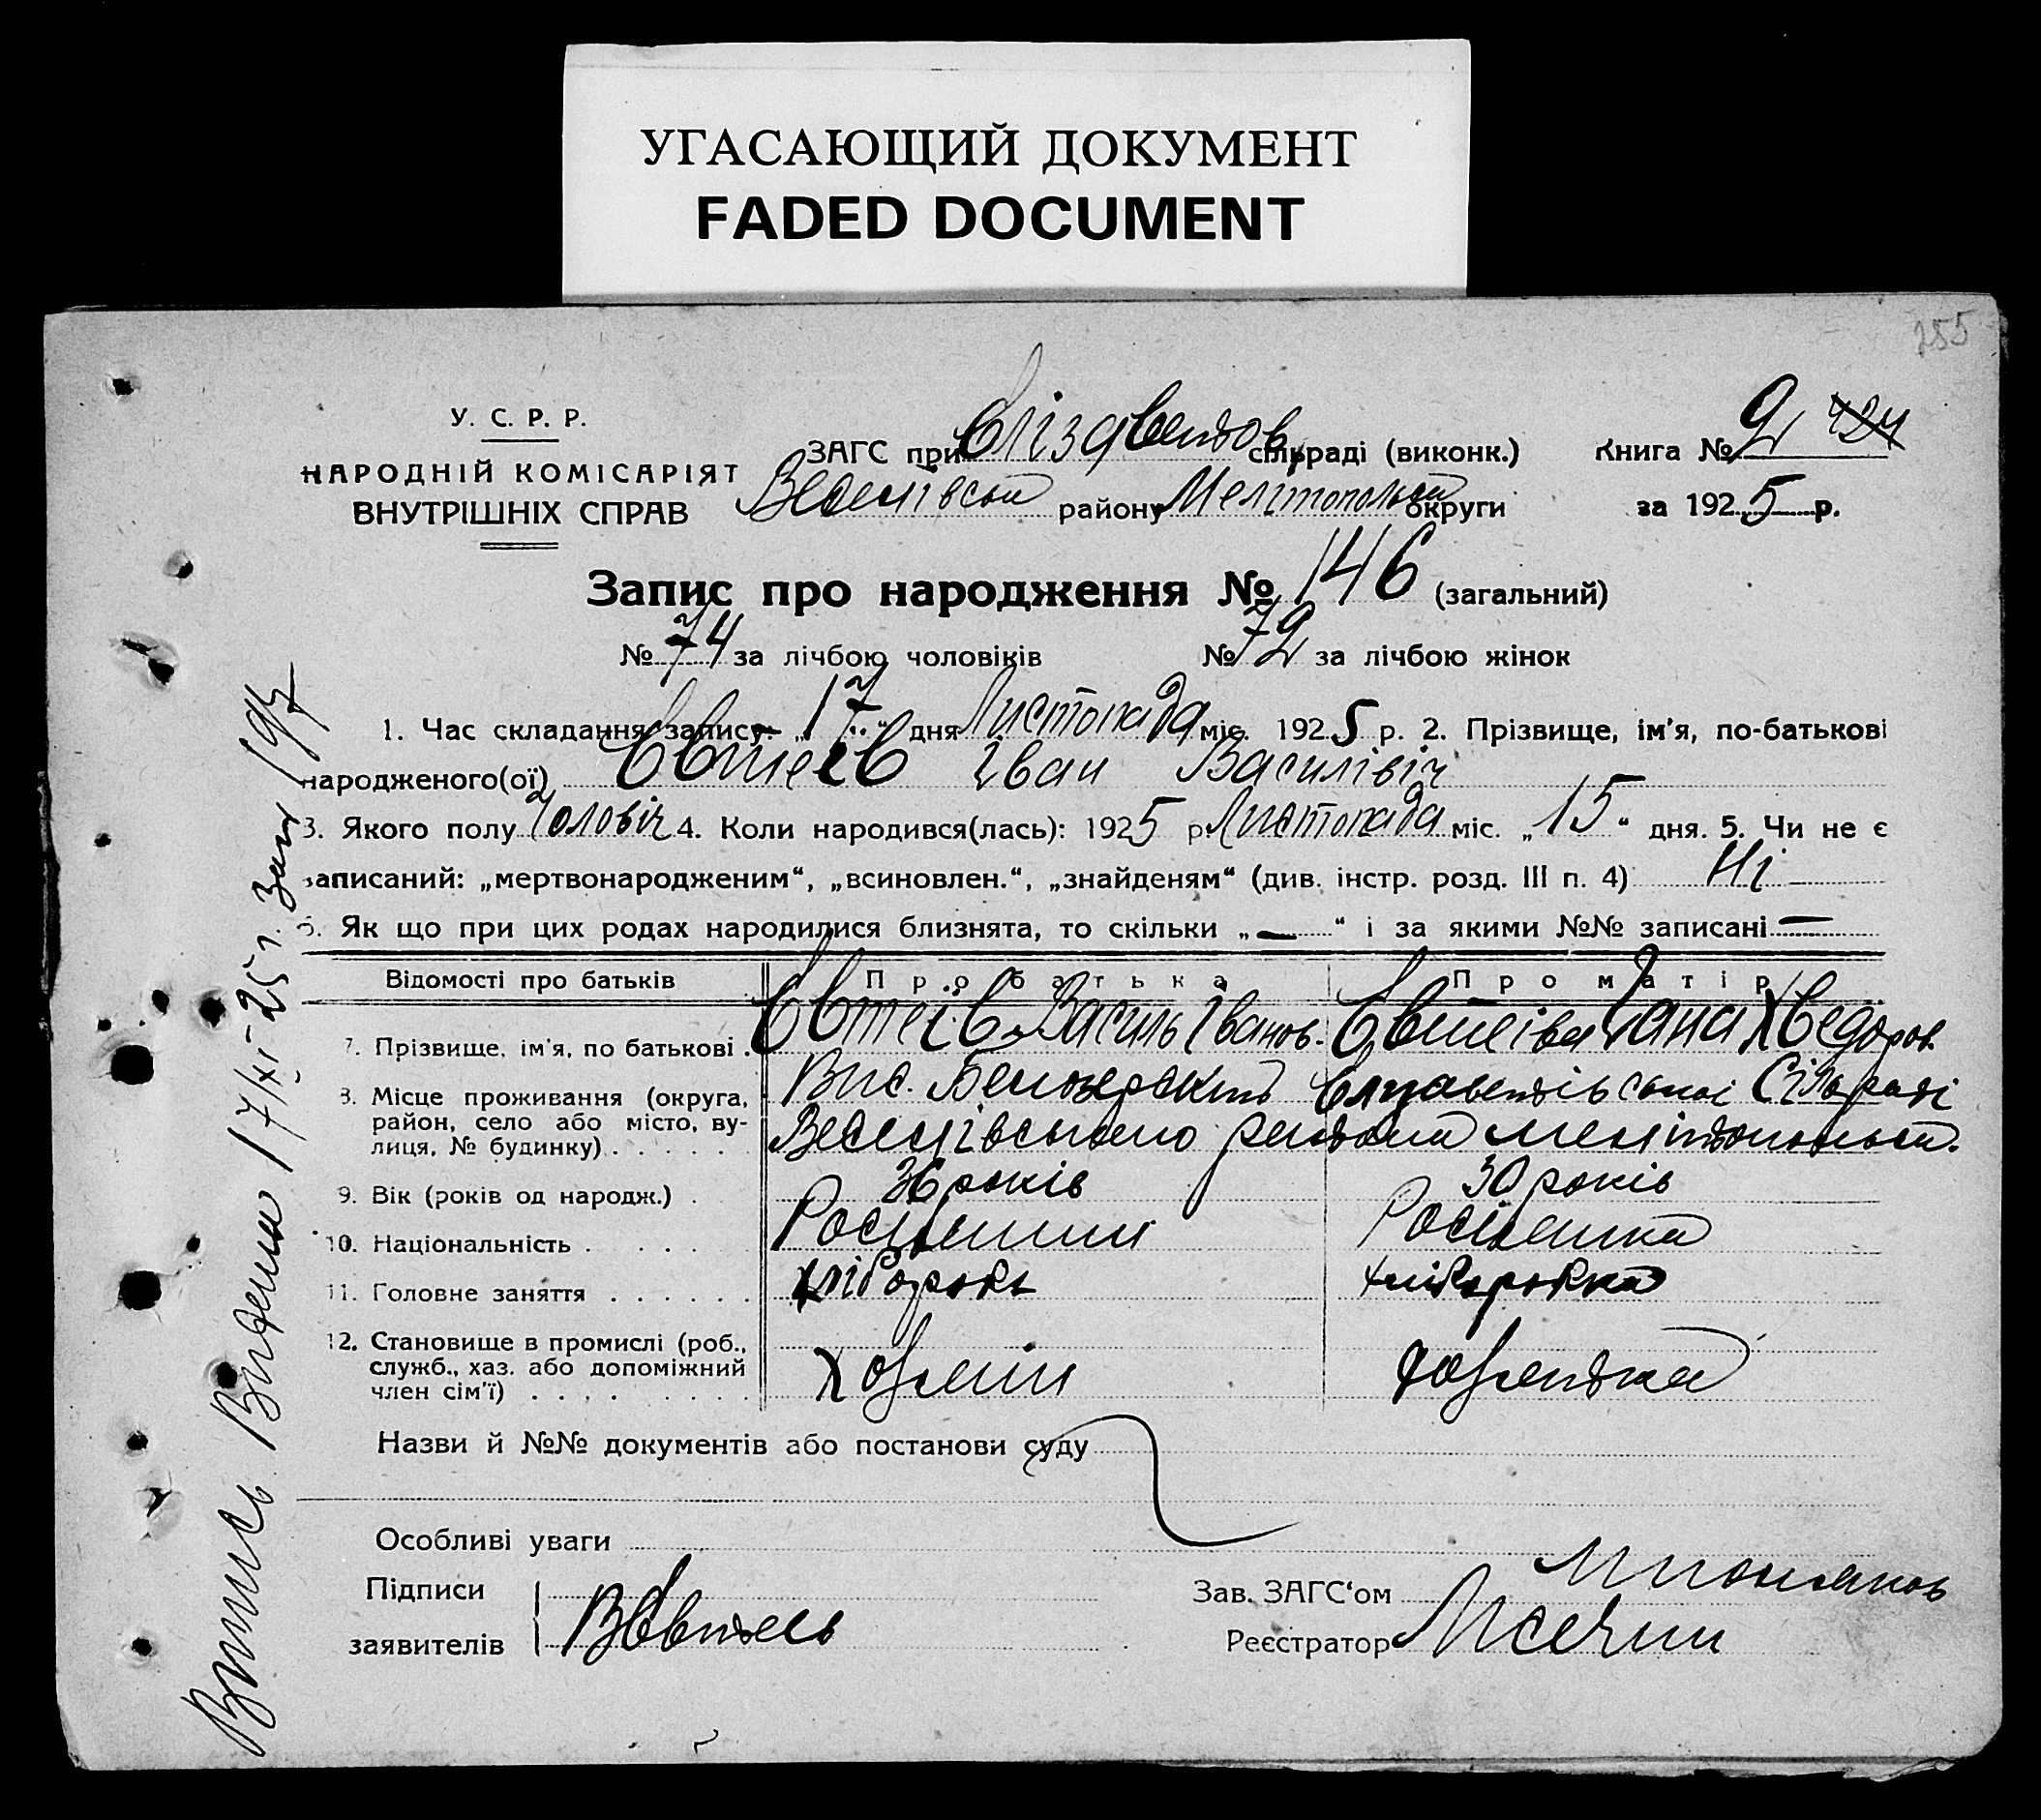 УГАСАЮЩИЙ ДОКУМЕНТ
FADED DOCUMENT
255
У. С. Р. Р.
НАРОДНІЙ КОМІСАРІЯТ
ВНУТРІШНІХ СПРАВ
ЗАГС при Єлізаветов. сільраді (виконк.)
Веселівськ району Мелітопольськ округи
Книга № 2 424
за 1925 р.
Запис про народження № 146 (загальний)
№ 74 за лічбою чоловіків № 72 за лічбою жінок
1. Час складання запису: „17“ дня Листопада міс. 1925 р. 2. Прізвище, ім'я, по-батькові
народженого(ої) Євтеєв Іван Василівіч
3. Якого полу Чоловіч 4. Коли народився(лась): 1925 р. Листопада міс. „15“ дня. 5. Чи не є
записаний: „мертвонародженим“, „всиновлен.“, „знайденям“ (див. інстр. розд. III п. 4) Ні
6. Як що при цих родах народилися близнята, то скільки „—“ і за якими №№ записані —
Відомості про батьків Про батька Про матір
7. Прізвище, ім'я, по батькові . Євтеїв Василь Іванов. Євтеіва Хведоров.
8. Місце проживання (округа, район, село або місто, вулиця, № будинку) . . . . . .
Вис. Сільраді
Веселівського
9. Вік (років од народж.) . 36 років 30 років
10. Національність . . . . . Росіянин Росіянка
11. Головне заняття . . . . . . хлібороб хліборобка
12. Становище в промислі (роб., служб., хаз. або допоміжний член сім'ї) . . . . . . . .
Хозяїн хозяйка
Назви й №№ документів або постанови суду
Особливі уваги
Підписи
заявителів В Євтеєв
Зав. ЗАГС‘ом
Реєстратор
Випись Видена 17/XI-25 г. За № 197